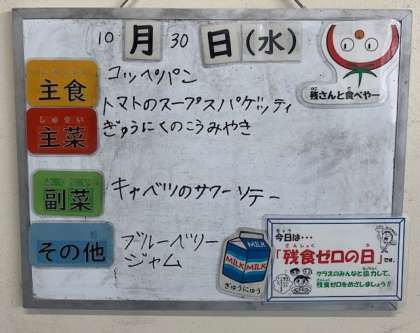 10月30日(水)
残さんと食べやー
主食
コッペパン
トマトのスープスパゲッティ
しゅさい
主菜
ぎゅうにくのこうみやき
副菜
キャベツのサワーソテー
その他
ブルーベリー
ジャム
MILK
MILK MILK
ぎゅうにゅう
きょう
今日は…
ざんしょく ひ
「残食ゼロの日」です。
クラスのみんなと協力して、
残食ゼロをめざしましょう!!